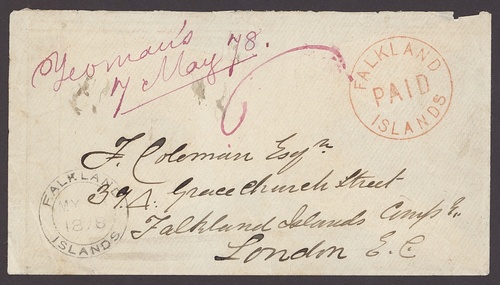 Yeoman's
7 May 78.
FALKLAND
PAID
ISLANDS
6
F. Coleman Esqre
FALKLAND
MY
1878
ISLANDS
Gracechurch Street
Falkland Islands Compy
London E.C